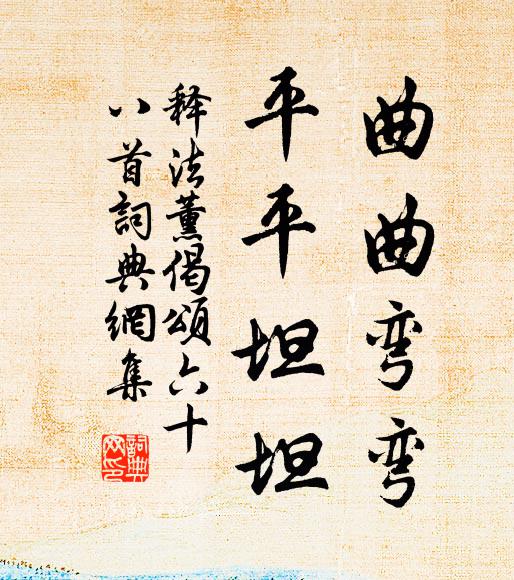 曲曲弯弯
平平坦坦
释法薰偈頌六十
八首詞典網集
詞典網印